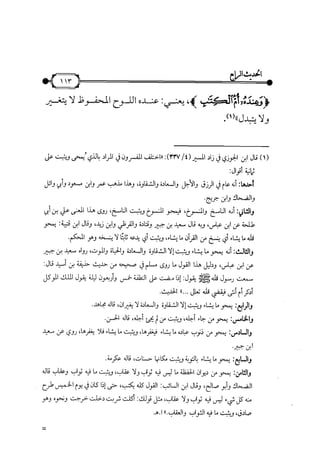 الحديث الرابع
١١٣
﴿وَعِندَهُۥٓ أُمُّ ٱلْكِتَٰبِ﴾، يعني: عنده اللوح المحفوظ لا يتغير
ولا يتبدل»(١).
(١) قال ابن الجوزي في زاد المسير (٤/ ٣٣٧): «اختلف المفسرون في المراد بالذي يُمحى ويثبت على
ثمانية أقوال:
أحدها: أنه عام في الرزق والأجل والسعادة والشقاوة، وهذا مذهب عمر وابن مسعود وأبي وائل
والضحاك وابن جريج.
والثاني: أنه الناسخ والمنسوخ، فيمحو المنسوخ ويثبت الناسخ، روى هذا المعنى علي بن أبي
طلحة عن ابن عباس، وبه قال سعيد بن جبير وقتادة والقرظي وابن زيد، وقال ابن قتيبة: يمحو
الله ما يشاء أي ينسخ من القرآن ما يشاء، ويثبت أي يدعه ثابتًا لا ينسخه وهو المحكم.
والثالث: أنه يمحو ما يشاء ويثبت إلا الشقاوة والسعادة والحياة والموت، رواه سعيد بن جبير
عن ابن عباس، ودليل هذا القول ما روى مسلم في صحيحه من حديث حذيفة بن أسيد قال:
سمعت رسول الله ﷺ يقول: إذا مضت على النطفة خمس وأربعون ليلة يقول الملك الموكل
أذكر أم أنثى فيقضي الله تعالى ...» الحديث.
والرابع: يمحو ما يشاء ويثبت إلا الشقاوة والسعادة لا يغيران، قاله مجاهد.
والخامس: يمحو من جاء أجله، ويثبت من لم يجئ أجله، قاله الحسن.
والسادس: يمحو من ذنوب عباده ما يشاء فيغفرها، ويثبت ما يشاء فلا يغفرها، روي عن سعيد
ابن جبير.
والسابع: يمحو ما يشاء بالتوبة ويثبت مكانها حسنات، قاله عكرمة.
والثامن: يمحو من ديوان الحفظة ما ليس فيه ثواب ولا عقاب، ويثبت ما فيه ثواب وعقاب قاله
الضحاك وأبو صالح، وقال ابن السائب: القول كله يكتب، حتى إذا كان في يوم الخميس طرح
منه كل شيء ليس فيه ثواب ولا عقاب، مثل قولك: أكلت شربت دخلت خرجت ونحوه وهو
صادق، ويثبت ما فيه الثواب والعقاب».ا.هـ.
=